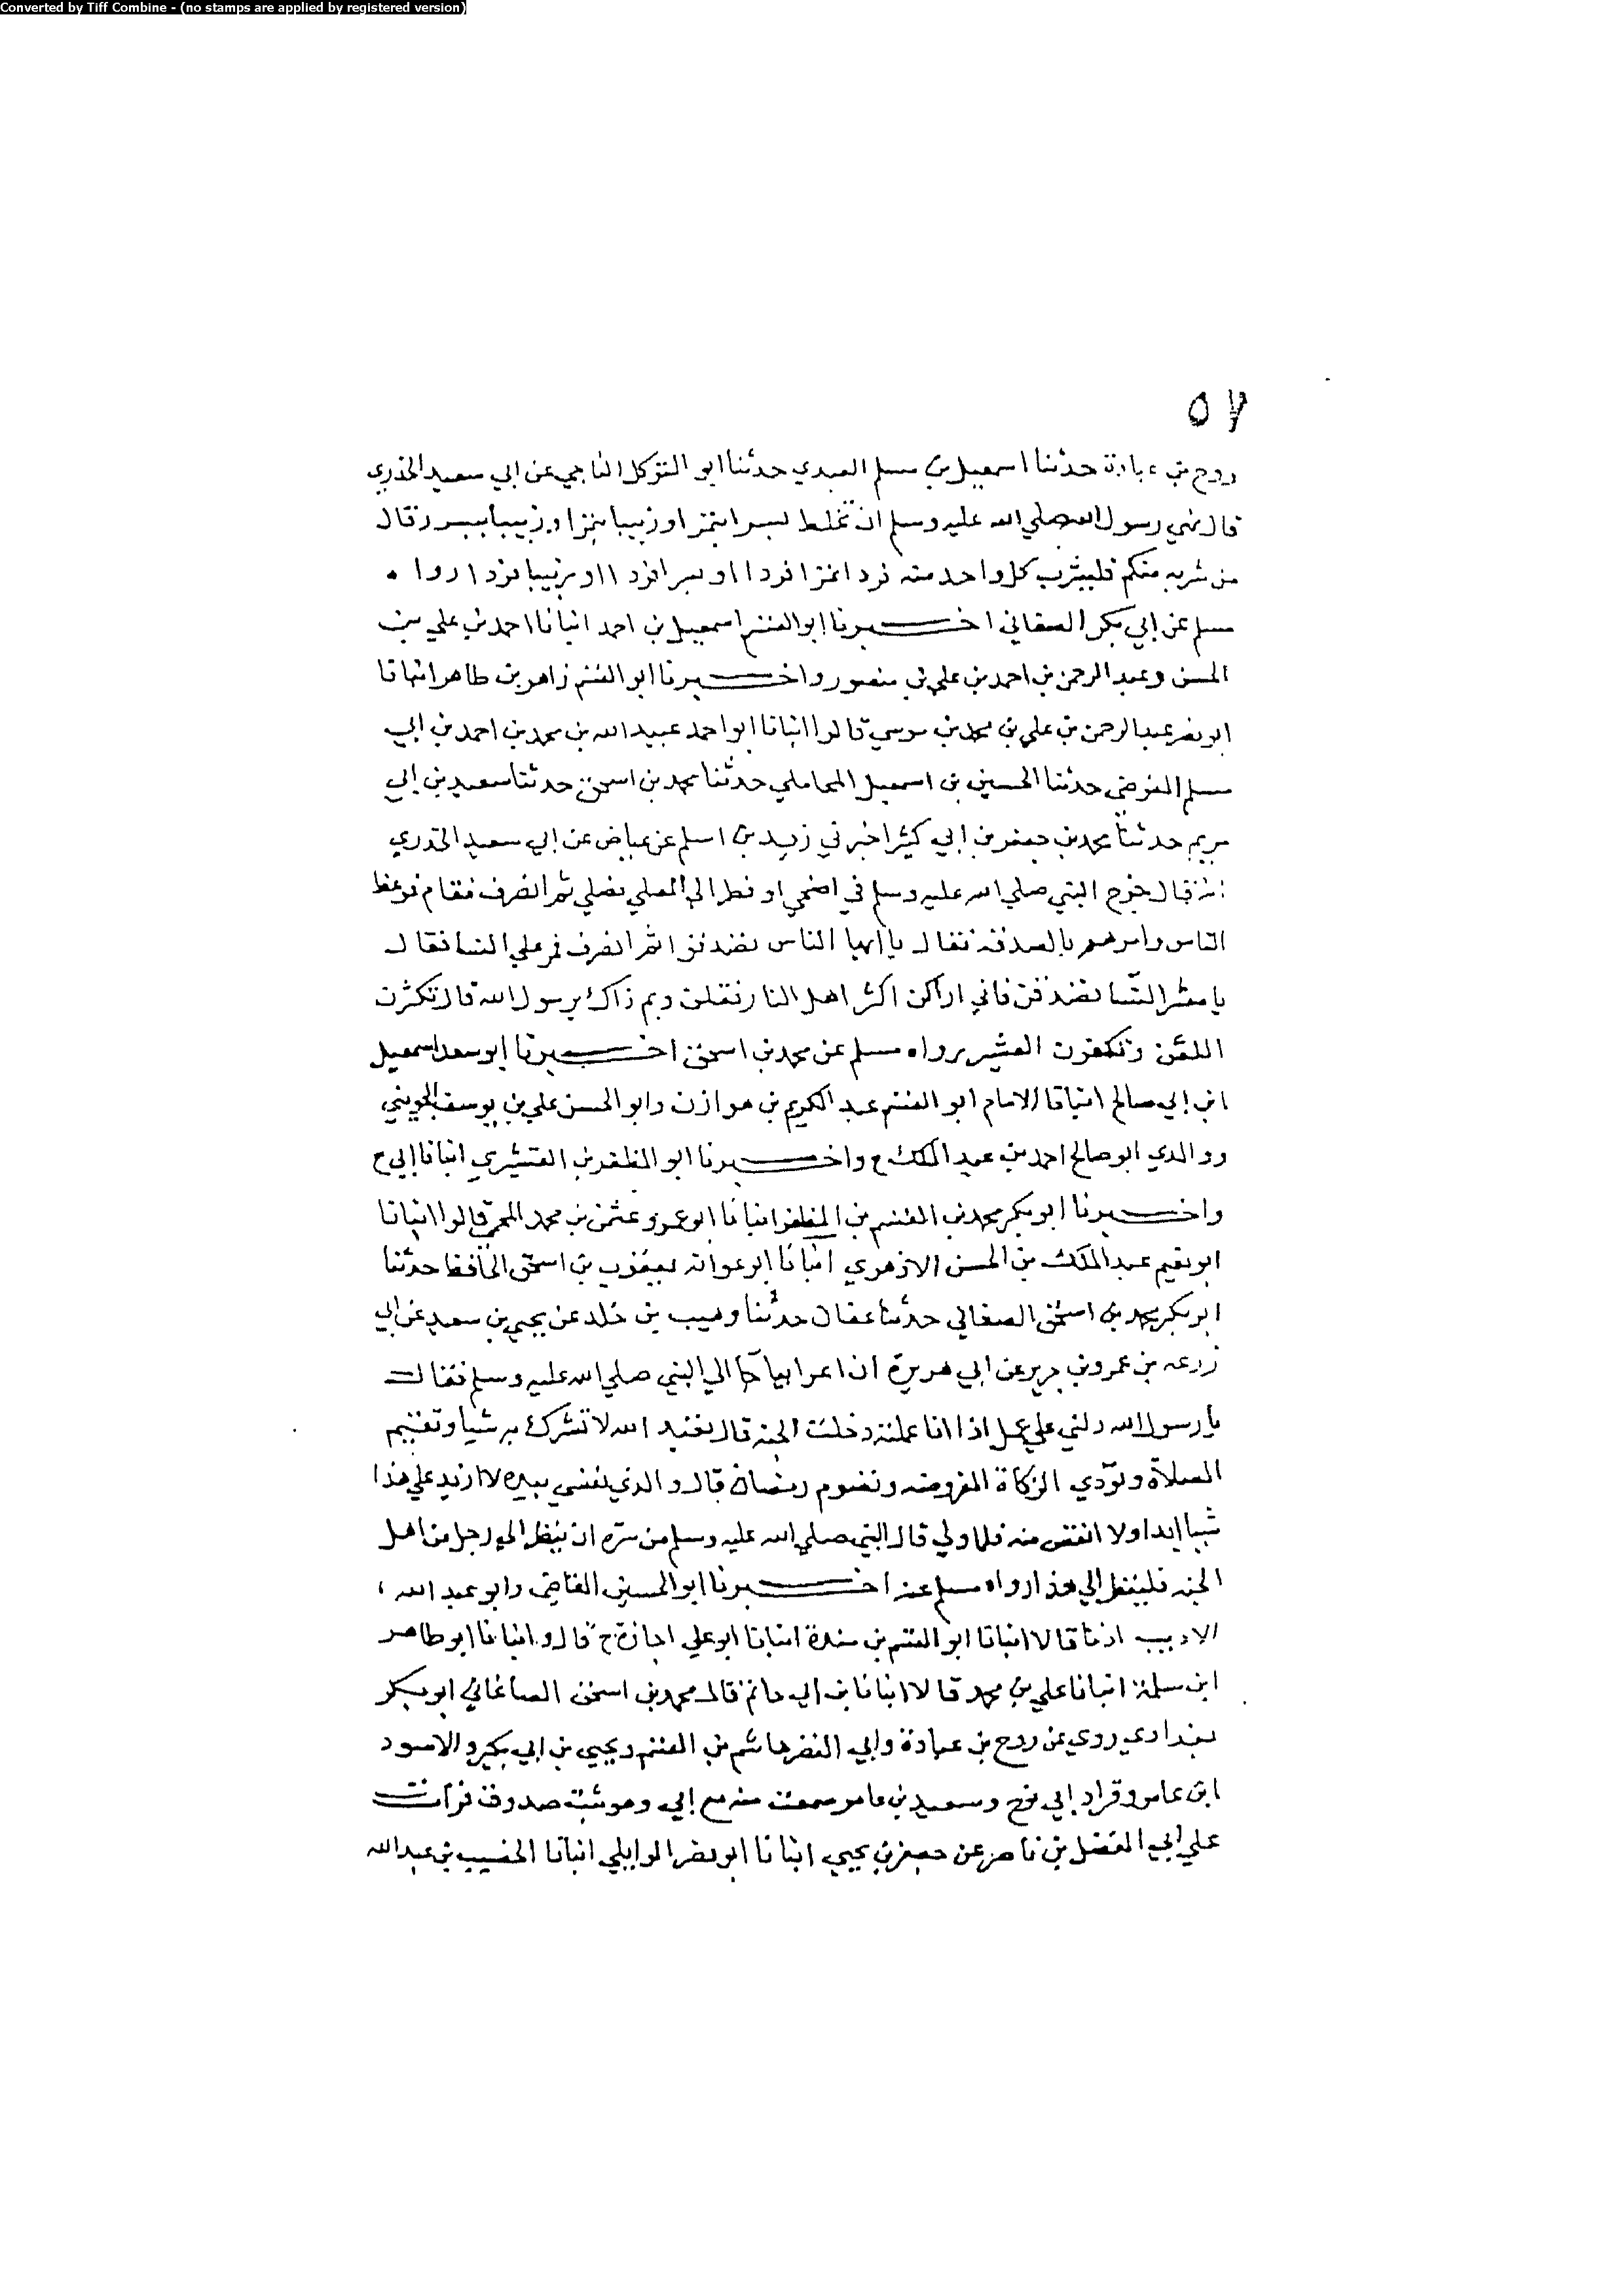 Converted by Tiff Combine - (no stamps are applied by registered version)
٥٧
روح بن عبادة حدثنا اسمعيل بن مسلم العبدي حدثنا ابو المتوكل الناجي عن ابي سعيد الخدري
قال نهي رسول الله صلي الله عليه وسلم ان نخلط بسرا بتمر او زبيبا بتمر او زبيبا ببسر وقال
من شربه منكم فليشرب كل واحد منه فردا تمرا فردا او بسرا فردا او زبيبا فردا رواه
مسلم عن ابي بكر الصغاني اخبرنا ابو القسم اسمعيل بن احمد انبانا احمد بن علي بن
الحسن وعبد الرحمن بن احمد بن علي بن منصور واخبرنا ابو القسم زاهر بن طاهر انبانا
ابو نصر عبد الرحمن بن علي بن محمد بن موسي قالوا انبانا ابو احمد عبيد الله بن محمد بن احمد بن ابي
مسلم الفرضي حدثنا الحسين بن اسمعيل المحاملي حدثنا محمد بن اسحق حدثنا سعيد بن ابي
مريم حدثنا محمد بن جعفر بن ابي كثير اخبرني زيد بن اسلم عن عياض عن ابي سعيد الخدري
انه قال خرج النبي صلي الله عليه وسلم في اضحي او فطر الي المصلي فصلي ثم انصرف فقام فوعظ
الناس وامرهم بالصدقة فقال يا ايها الناس تصدقوا ثم انصرف فمر علي النسا فقال
يا معشر النسا تصدقن فاني اراكن اكثر اهل النار فقلن وبم ذاك يرسول الله قال تكثرن
اللعن وتكفرن العشير رواه مسلم عن محمد بن اسحق اخبرنا ابو سعد اسمعيل
ابن ابي صالح انبانا الامام ابو القسم عبد الكريم بن هوازن وابو الحسن علي بن يوسف الجويني
ووالدي ابو صالح احمد بن عبد الملك ح واخبرنا ابو المظفر بن القشيري انبانا ابي ح
واخبرنا ابو بكر محمد بن القسم بن المظفر انبانا ابو عمرو عثمن بن محمد المحمي قالوا انبانا
ابو نعيم عبد الملك بن الحسن الازهري انبانا ابو عوانه يعقوب بن اسحق الحافظ حدثنا
ابو بكر محمد بن اسحق الصغاني حدثنا عفان حدثنا وهيب بن خلد عن يحيي بن سعيد عن ابي
زرعه بن عمرو بن جرير عن ابي هريرة ان اعرابيا جا الي النبي صلي الله عليه وسلم فقال
يا رسول الله دلني علي عمل اذا انا عملته دخلت الجنه قال تعبد الله لا تشرك به شيا وتقيم
الصلاة وتودي الزكاة المفروضه وتصوم رمضان قال والذي نفسي بيده لا ازيد علي هذا
شيا ابدا ولا انقص منه فلما ولي قال النبي صلي الله عليه وسلم من سره ان ينظر الي رجل من اهل
الجنه فلينظر الي هذا رواه مسلم عنه اخبرنا ابو الحسين القاضي وابو عبد الله
الاديب اذنا قالا انبانا ابو القسم بن مندة انبانا ابو علي اجازة ح قال وانبانا ابو طاهر
ابن سلمة انبانا علي بن محمد قالا انبانا بن ابي حاتم قال محمد بن اسحق الصاغاني ابو بكر
بغدادي روي عن روح بن عبادة وابي النضر هاشم بن القسم ويحيي بن ابي بكير والاسود
ابن عامر وقراد ابي نوح وسعيد بن عامر سمعت منه مع ابي وهو ثبت صدوق قرات
علي ابي الفضل بن ناصر عن جعفر بن يحيي انبانا ابو نصر الوايلي انبانا الخصيب بن عبد الله